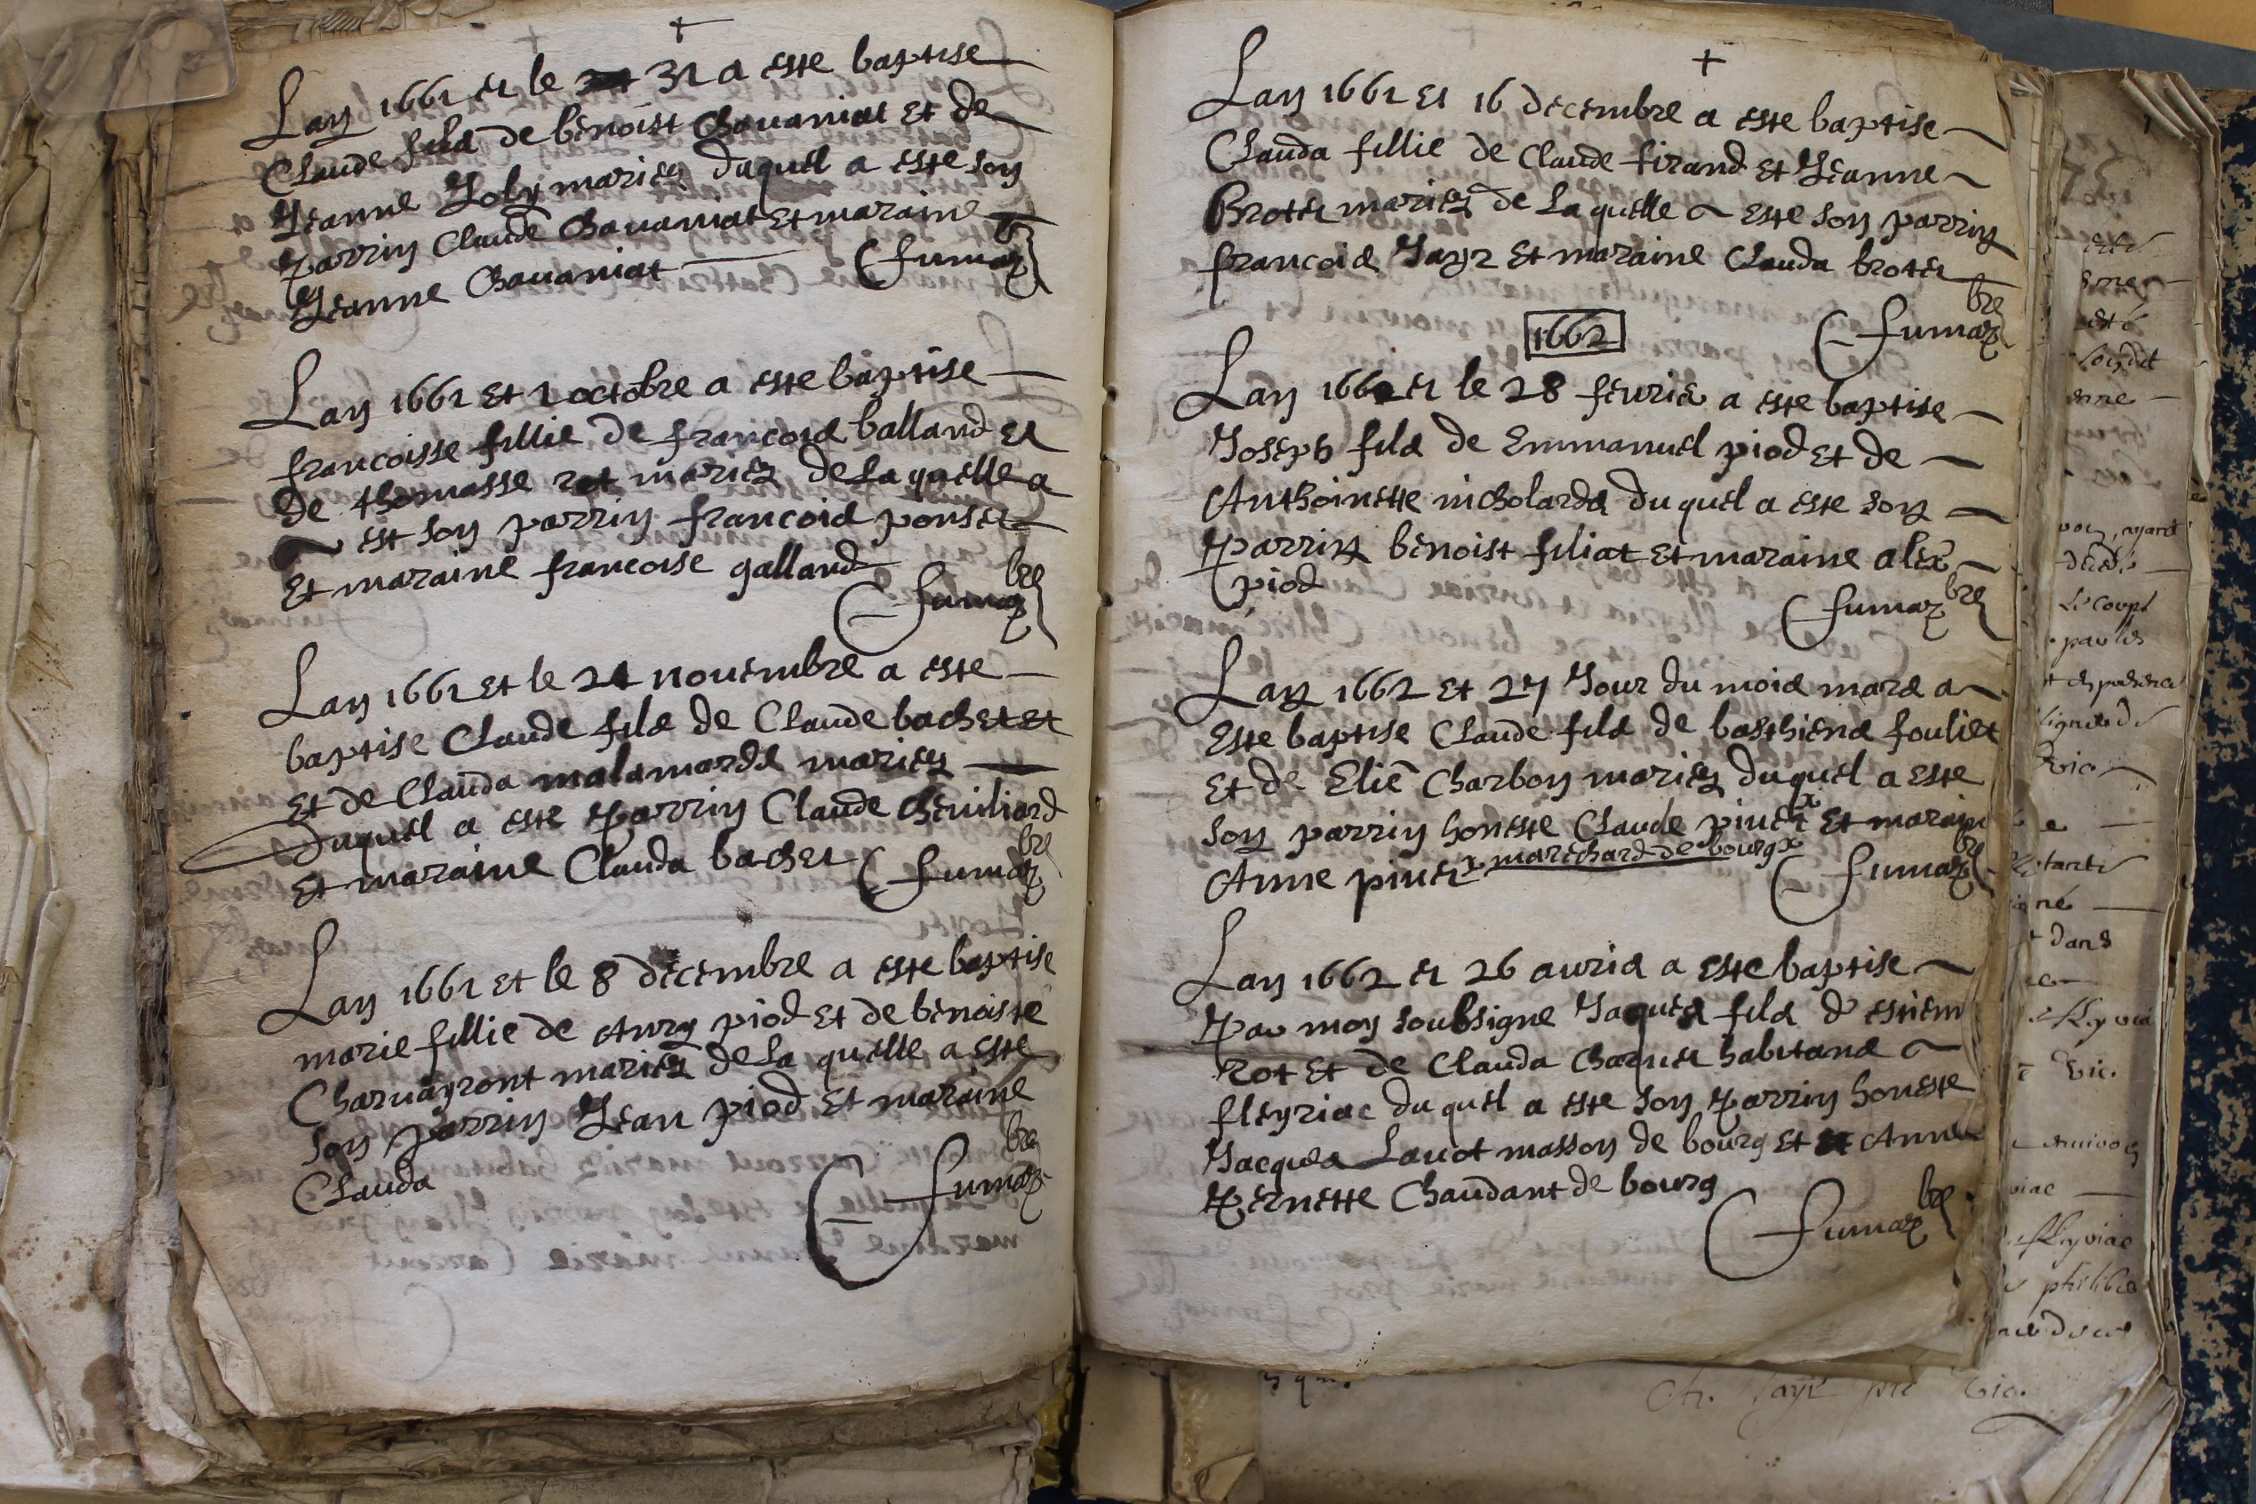 Lan 1661 et le 31 a este baptise
Claude fils de benoist Chavaniat et de
Jeanne Joly mariez duquel a este son
parrin Claude Chavaniat et maraine
Jeanne Chavaniat
Fumaz pbre
Lan 1661 et 1 octobre a este baptise
francoisse fillie de francois balland et
de thomasse rot mariez de la quelle a
est son parrin francois ponset
et maraine francoise galland
Fumaz pbre
Lan 1661 et le 24 novembre a este
baptise Claude fils de Claude bachet et
et de Clauda malamards mariez
duquel a este parrin Claude Cheviliard
et maraine Clauda bachet
Fumaz pbre
Lan 1661 et le 8 decembre a este baptise
marie fillie de Anry piod et de benoiste
Charvayront mariez de la quelle a este
son parrin Jean piod et maraine
Clauda
Fumaz pbre
Lan 1661 et 16 decembre a este baptise
Clauda fillie de Claude firand et Jeanne
Brotet mariez de la quelle a este son parrin
francois Jayr et maraine Clauda brotet
Fumaz pbre
1662
Lan 1662 et le 28 fevrier a este baptise
Joseph fils de Emmanuel piod et de
Anthoinette nicholards duquel a este son
parrin benoist filiat et maraine alex
piod
Fumaz pbre
Lan 1662 et 27 Jour du mois mars a
este baptise Claude fils de basthiens fouliet
et de Elie Charbon mariez duquel a este
son parrin honeste Claude pivet x et marain
Anne pivet x marechard de bourg x
Fumaz pbre
Lan 1662 et 26 avris a este baptise
Par moy soubsigne Jaques fils d estiem
rot et de Clauda Chaquet habitans a
fleyriac duquel a este son parrin honeste
Jacques Lavot masson de bourg et Anne
Pernette Chaudant de bourg
Fumaz pbre